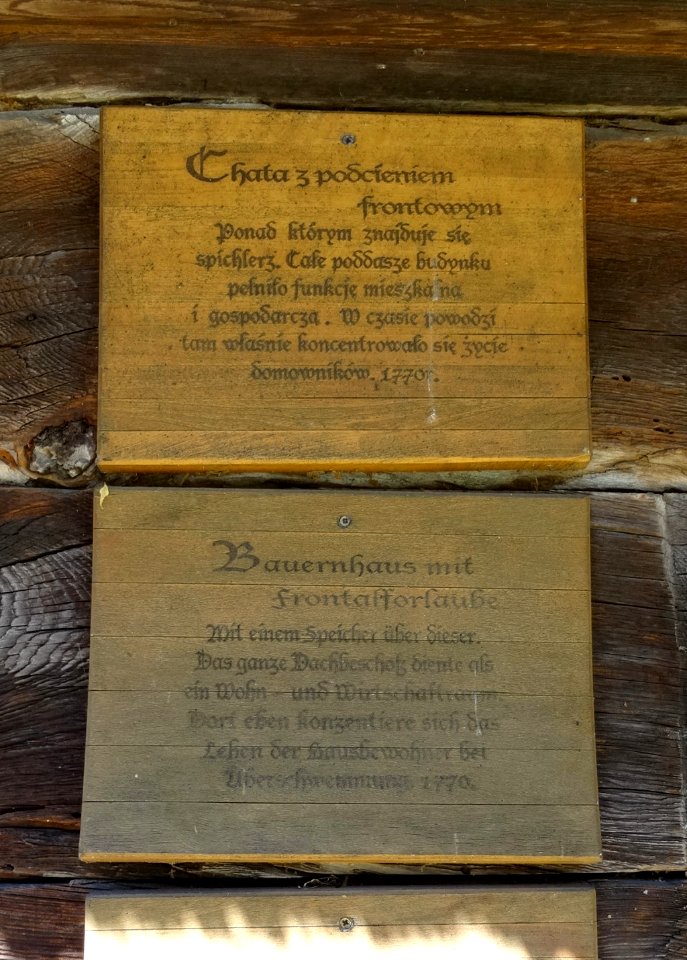 Chata z podcieniem
frontowym
Ponad którym znajduje się
spichlerz. Całe poddasze budynku
pełniło funkcję mieszkalną
i gospodarczą. W czasie powodzi
tam właśnie koncentrowało się życie
domowników. 1770r.
Bauernhaus mit
Frontalforlaube
Mit einem Speicher über dieser.
Das ganze Dachbeschoß diente als
ein Wohn - und Wirtschaftraum.
Dort eben konzentiere sich das
Leben der Hausbewohner bei
Überschwemmung. 1770.